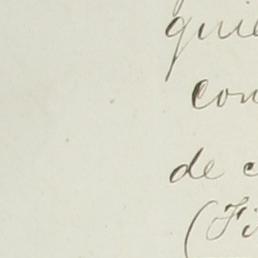 quie
con
de c
(Fi